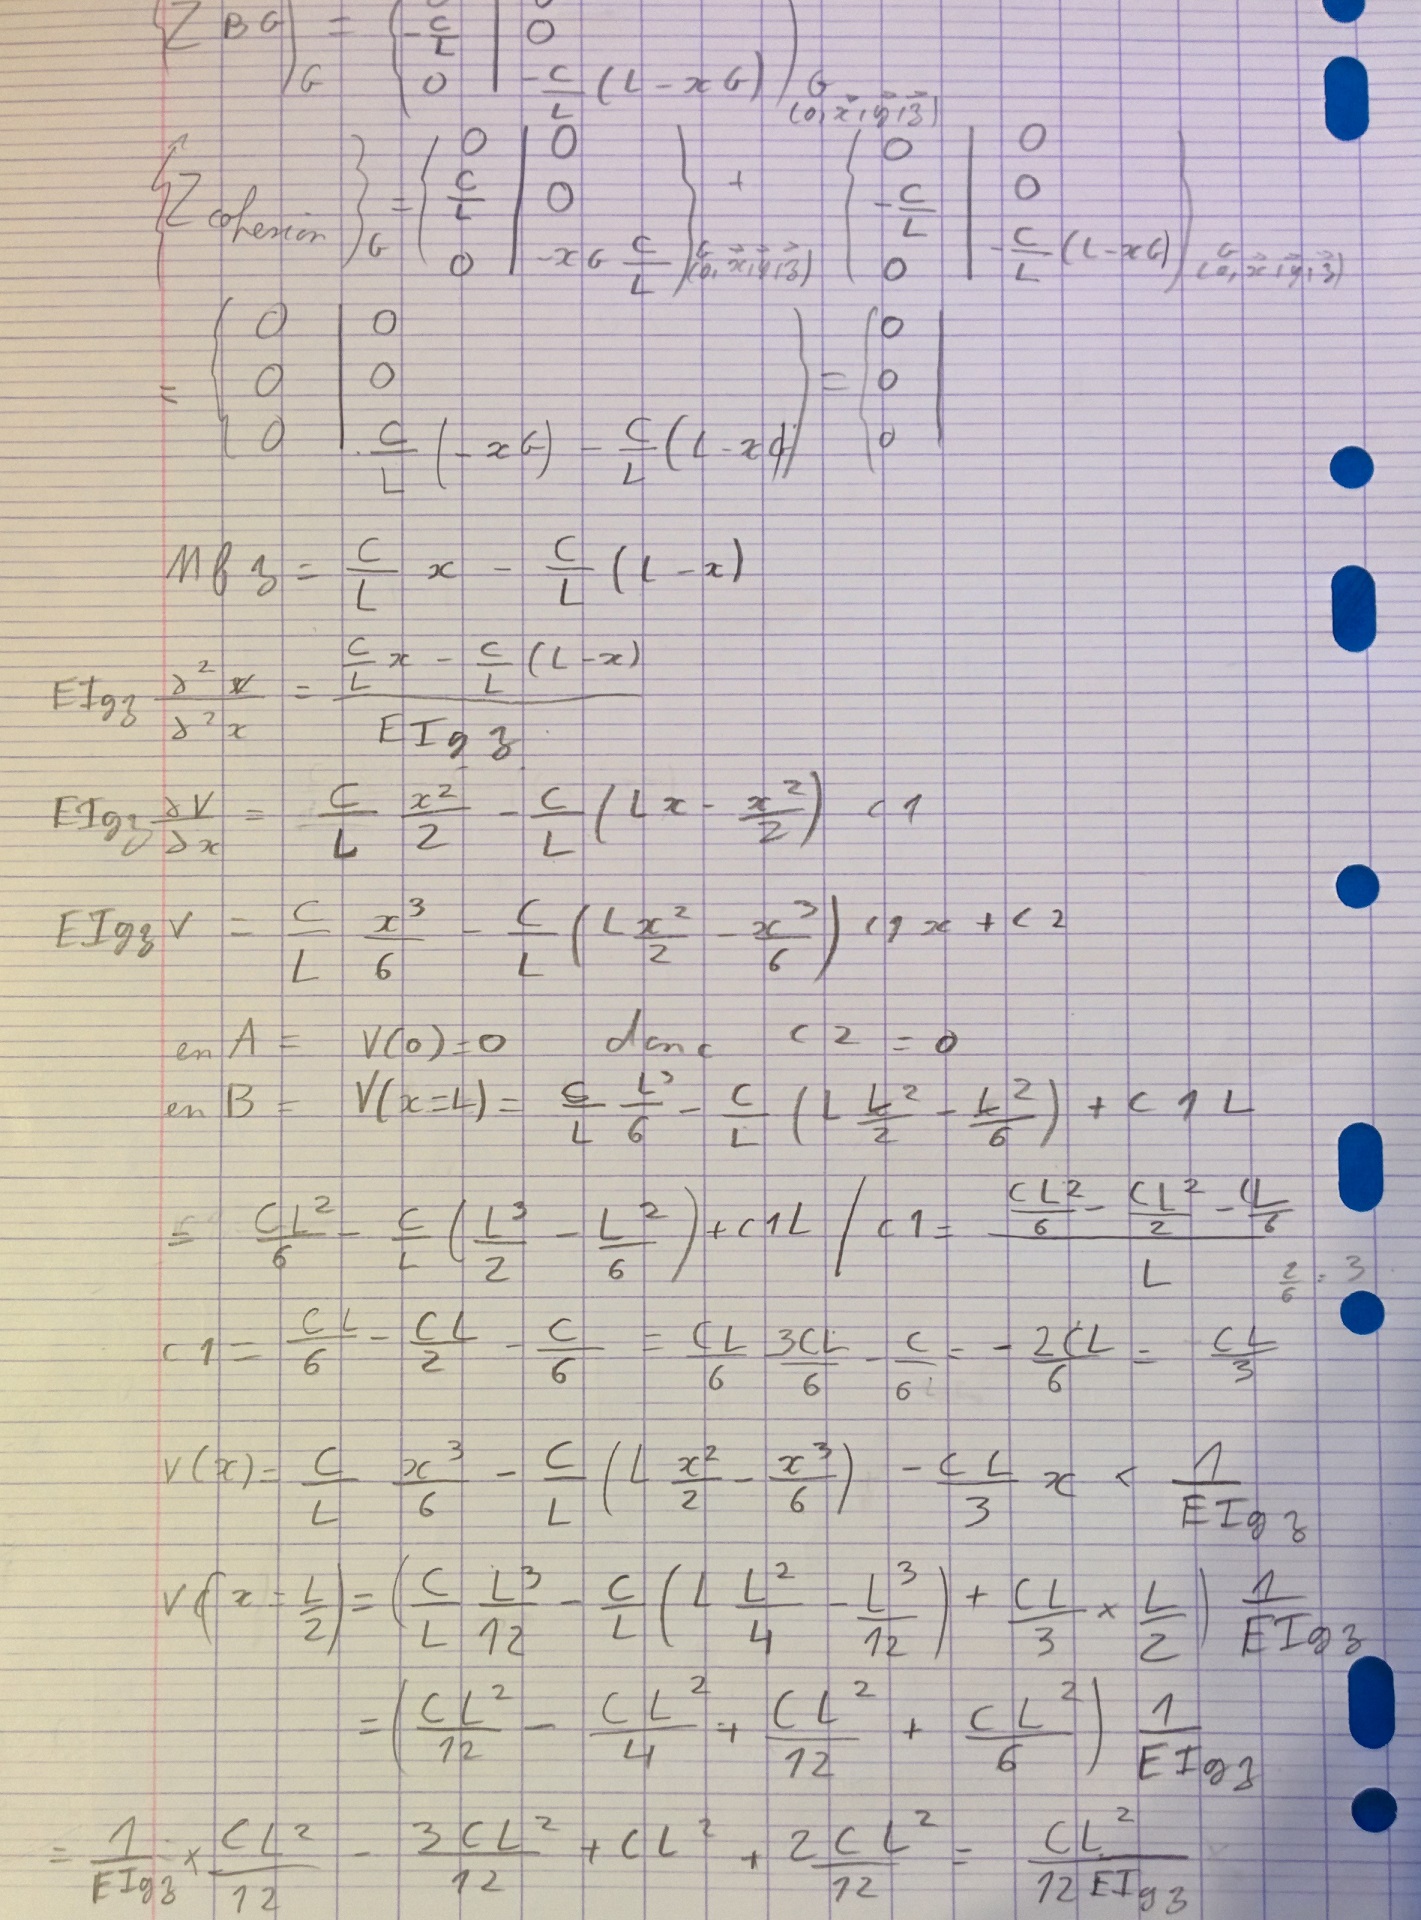 {Z BG}G = {0 | 0 ; -C/L | 0 ; 0 | -C/L (L - xG)}G (0, x⃗, y⃗, z⃗)
{Z cohesion}G = {0 | 0 ; C/L | 0 ; 0 | -xG C/L}G (0, x⃗, y⃗, z⃗) + {0 | 0 ; -C/L | 0 ; 0 | -C/L (L-xG)}G (0, x⃗, y⃗, z⃗)
= {0 | 0 ; 0 | 0 ; 0 | C/L (-xG) - C/L (L-xG)} = {0 ; 0 ; 0 |
Mfz = C/L x - C/L (L-x)
EIgz ∂²v/∂²x = (C/L x - C/L (L-x))/EIgz
EIgz ∂V/∂x = C/L x²/2 - C/L (Lx - x²/2) c1
EIgz V = C/L x³/6 - C/L (L x²/2 - x³/6) c1 x + c2
en A = V(0)=0 donc c2 = 0
en B = V(x=L) = C/L L³/6 - C/L (L L²/2 - L²/6) + c1 L
= CL²/6 - C/L (L³/2 - L²/6) + c1L / c1 = (CL²/6 - CL²/2 - CL/6)/L 2/6 = 3
c1 = CL/6 - CL/2 - C/6 = CL/6 3CL/6 - C/6 = -2CL/6 = CL/3
V(x) = C/L x³/6 - C/L (L x²/2 - x³/6) - CL/3 x × 1/EIgz
V(x = L/2) = (C/L L³/12 - C/L (L L²/4 - L³/12) + CL/3 × L/2) 1/EIgz
= (CL²/12 - CL²/4 + CL²/12 + CL²/6) 1/EIgz
= 1/EIgz × CL²/12 - 3CL²/12 + CL² + 2CL²/12 = CL²/12EIgz